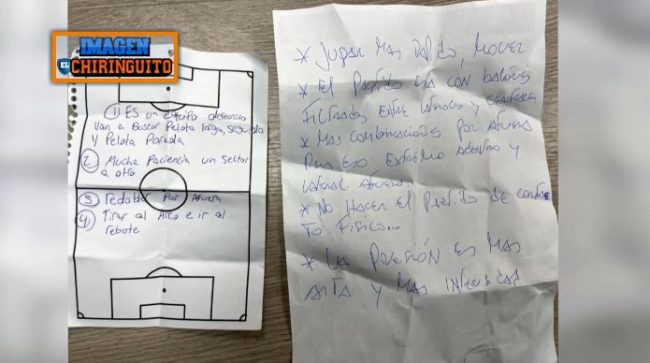 IMAGEN
EL CHIRINGUITO
① Es un equipo defensivo
van a Buscar Pelota larga, segunda
y Pelota Parada
② Mucha Paciencia un sector
a otro
③ Por Afuera
④ Tirar al Arco e ir al
rebote
* Jugar mas rapido, mover
* El Partido esta con balones
filtrados entre laterales y centrales
* Mas combinaciones por afuera
Para eso extremo adentro y
lateral afuera.
* No hacer el Partido de contac
to fisico...
* La Presión es mas
alta y mas intensidad